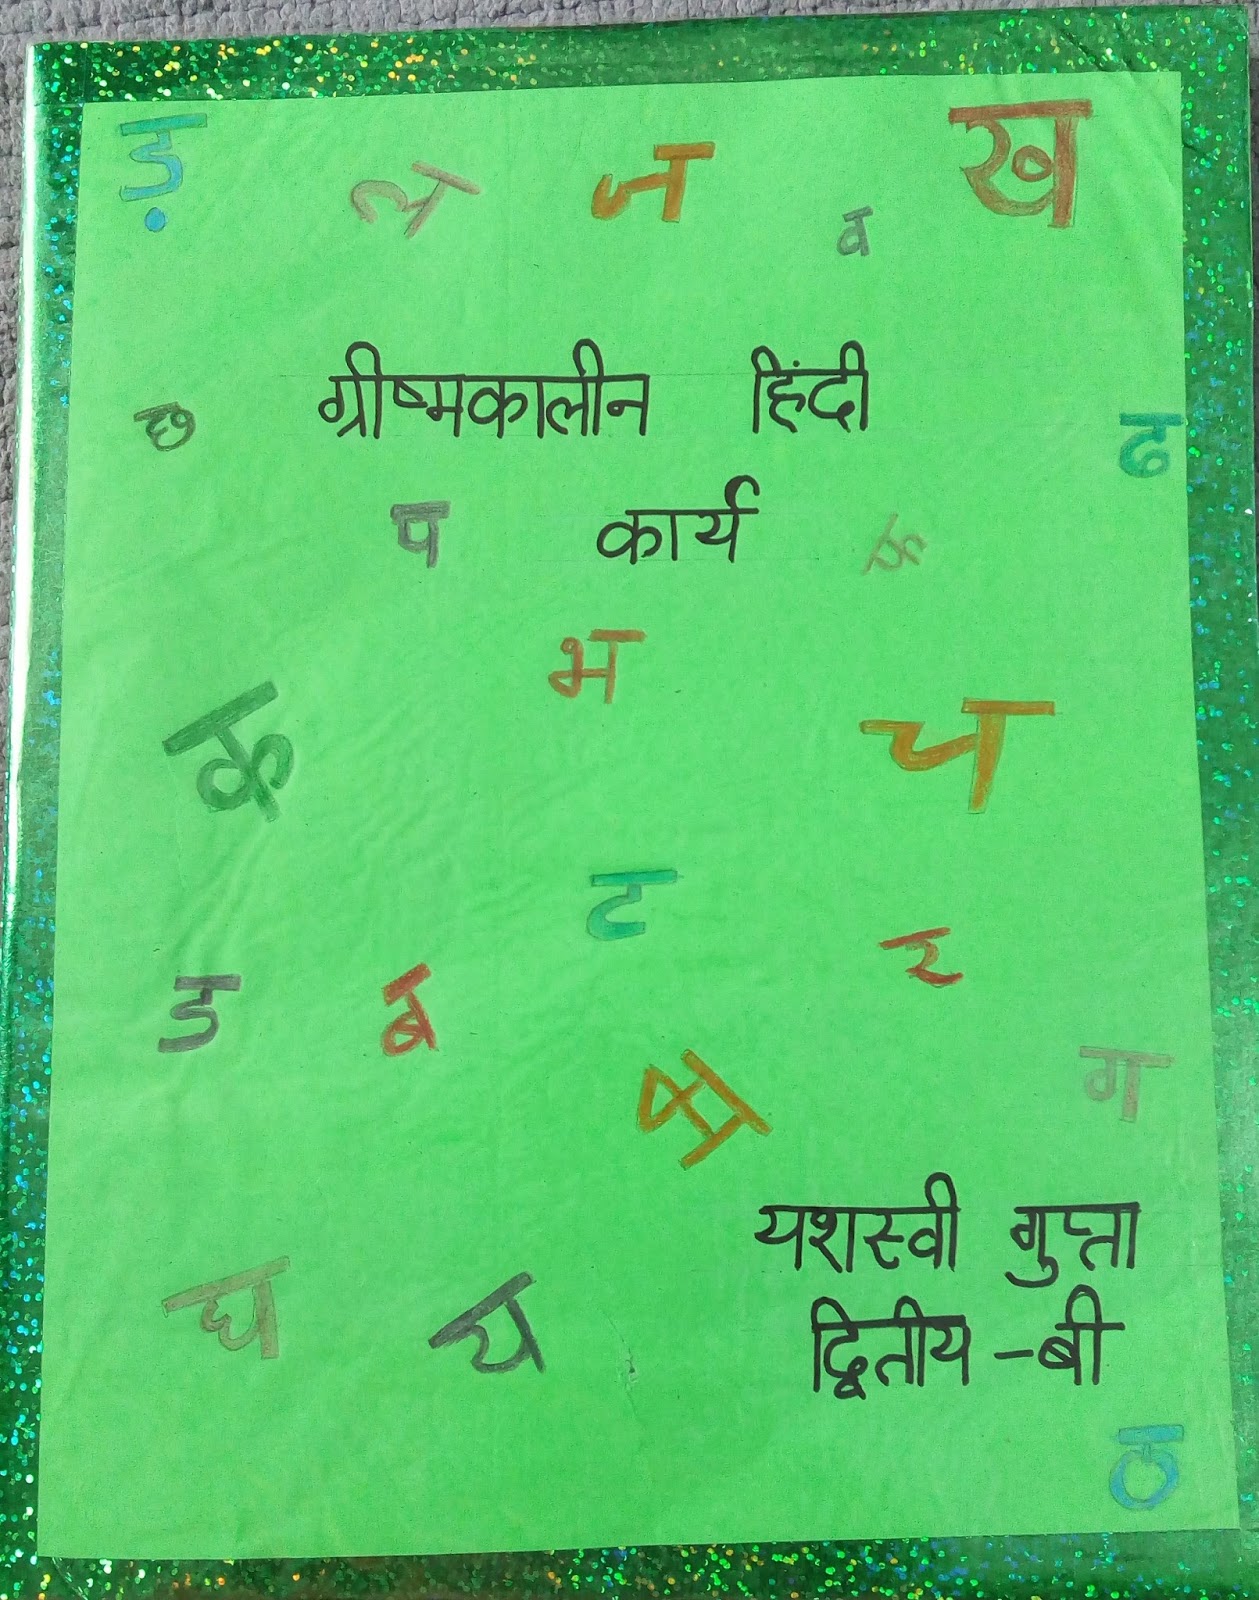 ड़ ल ज व ख
ग्रीष्मकालीन हिंदी
छ ढ
प कार्य
भ
क च
ट
र
ड ब
ग
यशस्वी गुप्ता
घ य
द्वितीय -बी
ठ